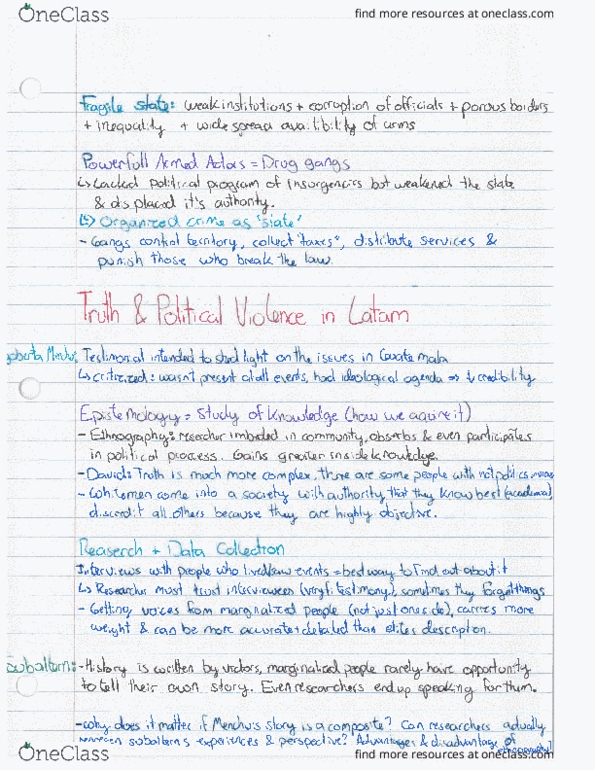 OneClass
find more resources at oneclass.com
Fragile state: weak institutions + corruption of officials + porous borders
+ inequality + wide spread availibility of arms
Powerfull Armed Actors = Drug gangs
↳ Lacked political program of insurgencies but weakened the state
& displaced it's authority.
↳ Organized crime as 'state'
- Gangs control territory, collect "taxes", distribute services &
punish those who break the law.
Truth & Political Violence in Latam
goberta Menchu: Testimonial intended to shed light on the issues in Guatemala
↳ critizized: wasn't present at all events, had ideological agenda ⇒ ↓ credibility
Epistemology = Study of Knowledge (how we aquire it)
- Ethnography: researcher imbeded in community, absorbs & even participates
in political process. Gains greater inside knowledge.
- David: Truth is much more complex, there are some people with not politics
- White men come into a society with authority that they know best (academia)
discredit all others because they are highly objective.
Reaserch + Data Collection
Interviews with people who lived/saw events = best way to find out about it
↳ Researcher must trust interviewees (veryfi testimony), sometimes they forget things
- Getting voices from marginalized people (not just ones do), carries more
weight & can be more accurate + detailed than elites description.
Subaltern: - History is written by victors, marginalized people rarely have opportunity
to tell their own story. Even researchers end up speaking for them.
- Why does it matter if Menchu's story is a composite? Can researchers actually
subaltern's experiences & perspective? Advantages & disadvantage of
OneClass
find more resources at oneclass.com